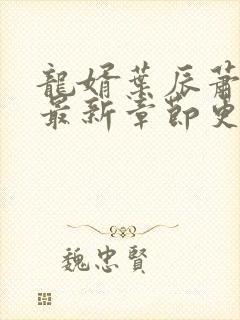 龍婿葉辰蕭
最新章節史
魏忠賢